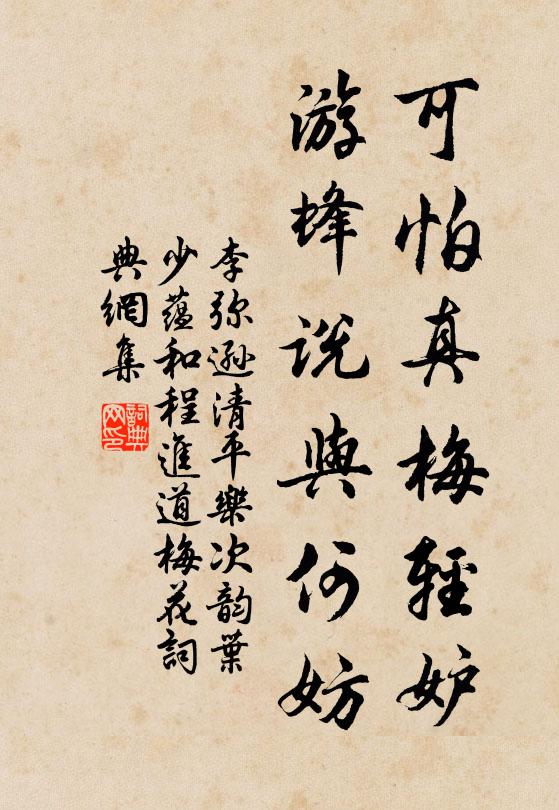 可怕真梅輕妒
游蜂說與何妨
李弥遜清平樂次韵葉
少蘊和程進道梅花詞
典網集
詞典网印